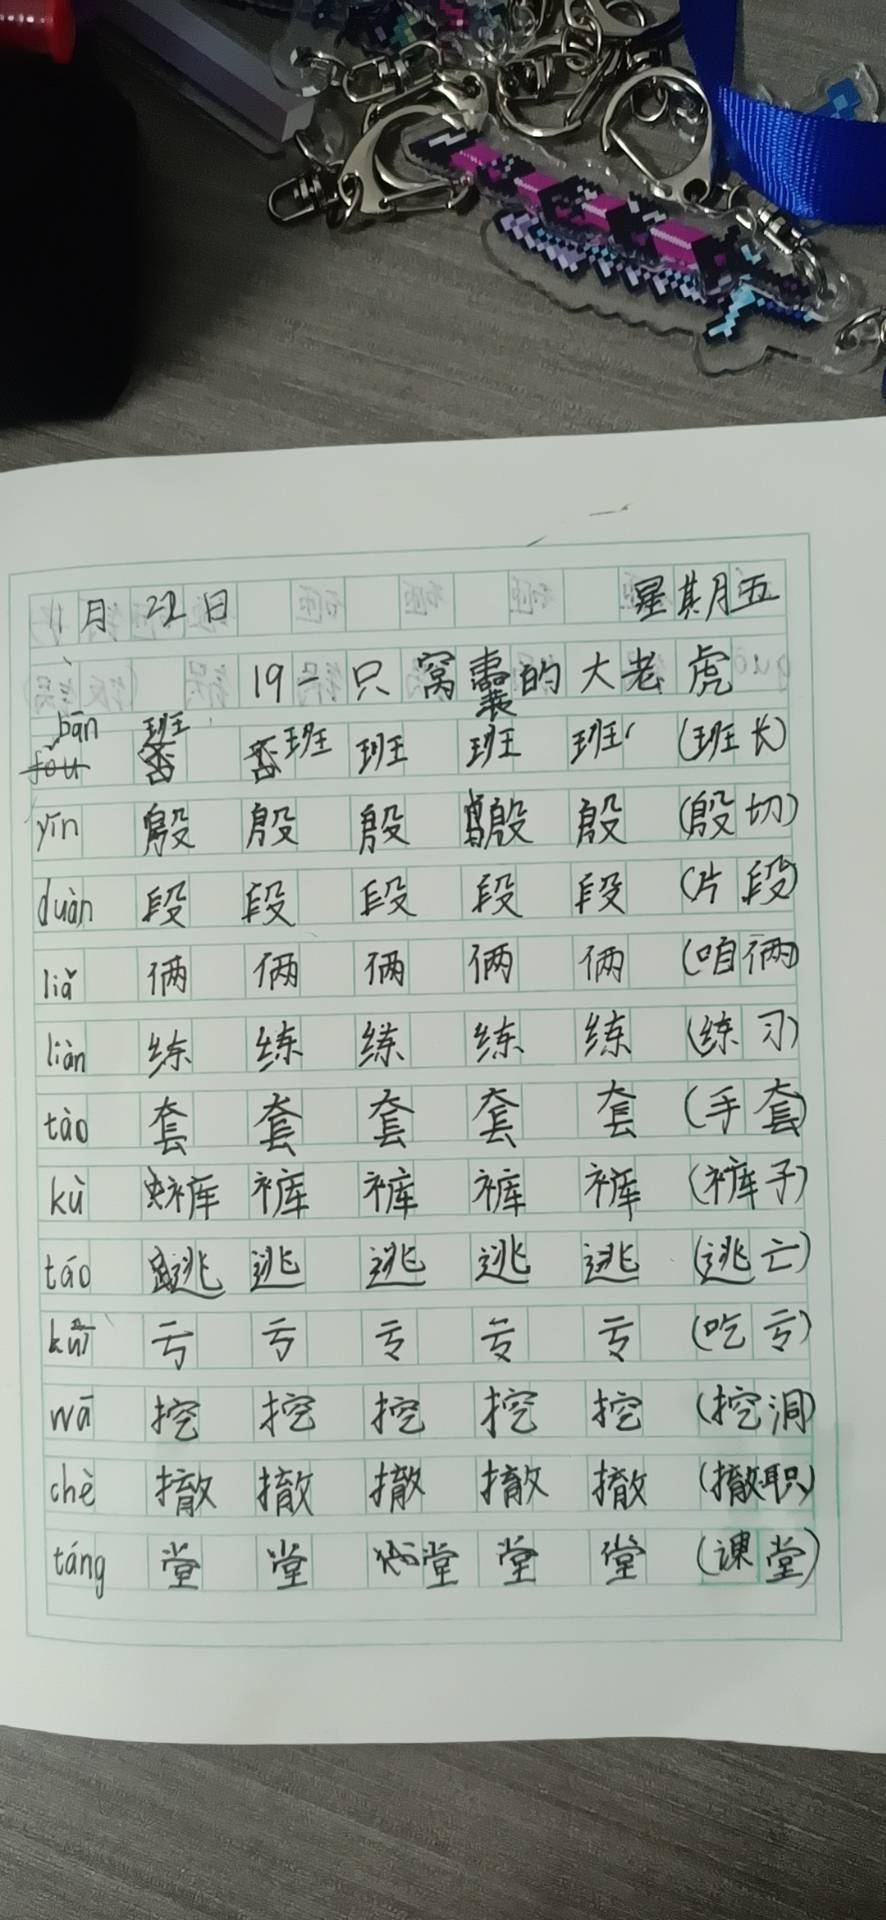 11月22日 星其月五
19一只窝囊的大老虎
bān 班 班 班 班 班 (班长)
yīn 殷 殷 殷 殷 殷 (殷切)
duàn 段 段 段 段 段 (片段)
liǎ 俩 俩 俩 俩 俩 (咱俩)
liàn 练 练 练 练 练 (练习)
tào 套 套 套 套 套 (手套)
kù 裤 裤 裤 裤 裤 (裤子)
táo 逃 逃 逃 逃 逃 (逃亡)
kuī 亏 亏 亏 亏 亏 (吃亏)
wā 挖 挖 挖 挖 挖 (挖洞)
chè 撤 撤 撤 撤 撤 (撤职)
táng 堂 堂 堂 堂 堂 (课堂)